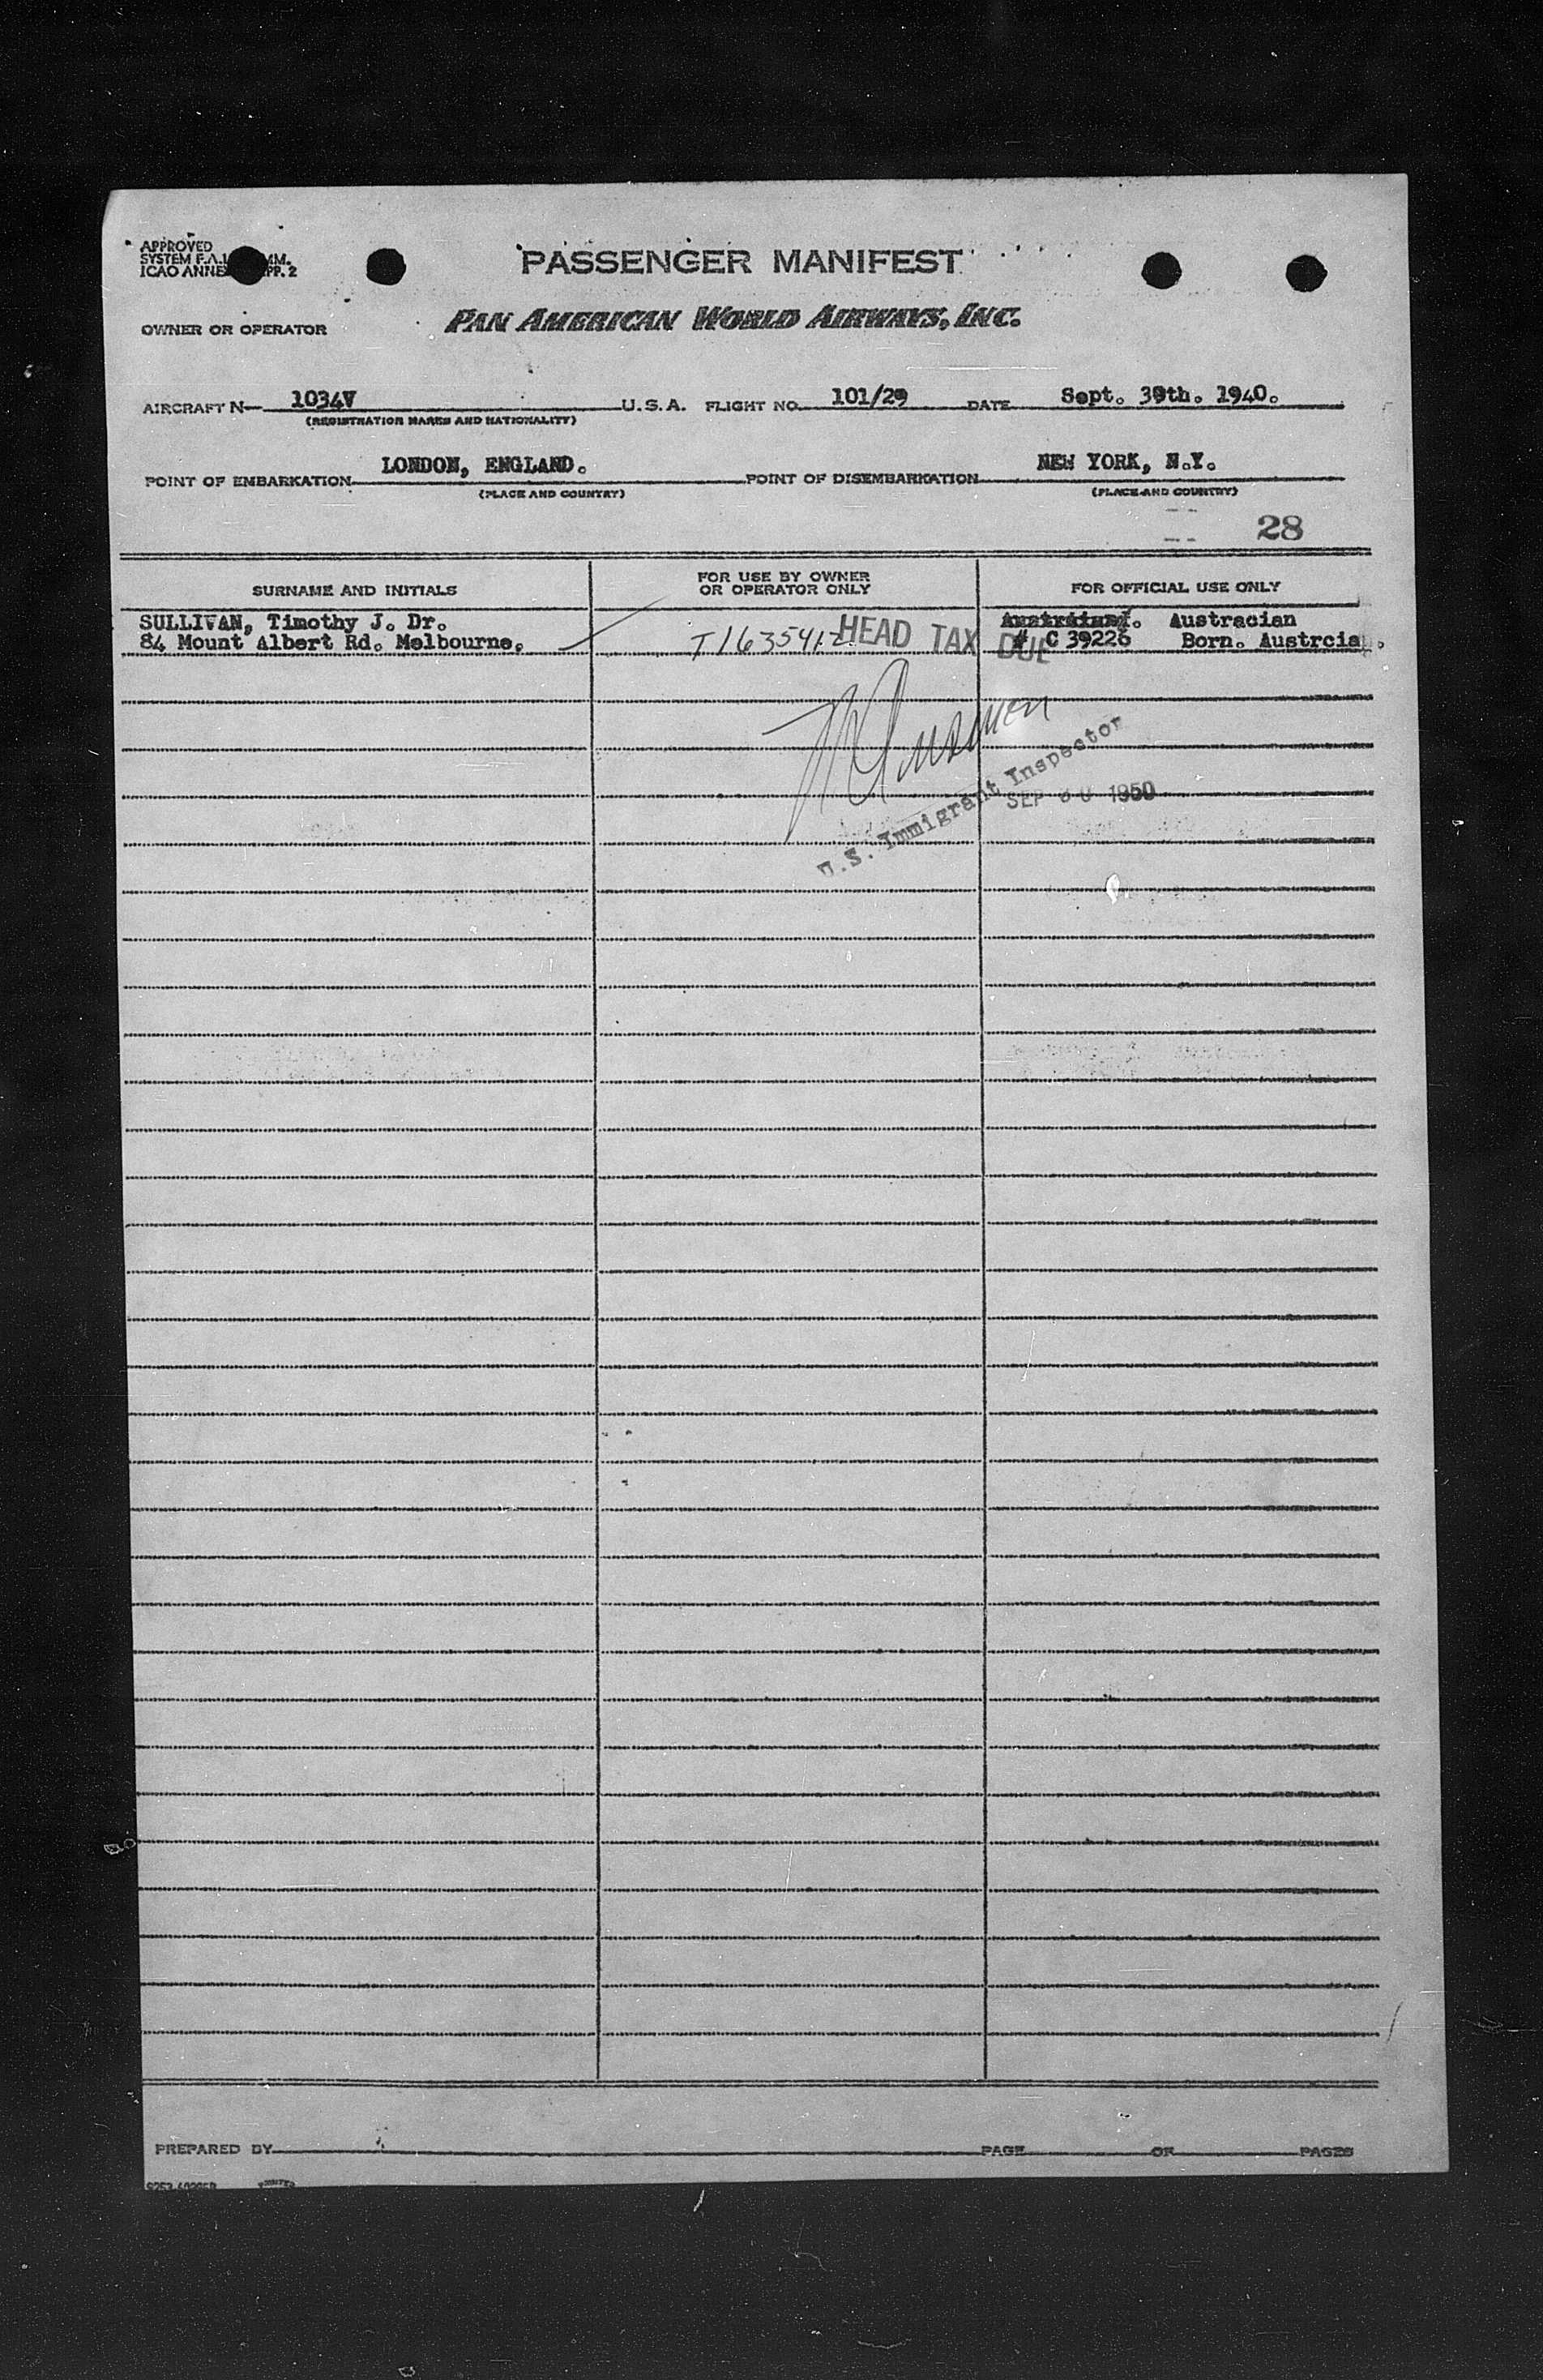 APPROVED
SYSTEM F.A.L. MM.
ICAO ANNEX PP. 2
PASSENGER MANIFEST
OWNER OR OPERATOR
PAN AMERICAN WORLD AIRWAYS, INC.
AIRCRAFT N— 1034V U.S.A. FLIGHT NO. 101/29 DATE Sept. 30th. 1940.
(REGISTRATION MARKS AND NATIONALITY)
POINT OF EMBARKATION LONDON, ENGLAND. POINT OF DISEMBARKATION NEW YORK, N.Y.
(PLACE AND COUNTRY) (PLACE AND COUNTRY)
28
SURNAME AND INITIALS
FOR USE BY OWNER
OR OPERATOR ONLY
FOR OFFICIAL USE ONLY
SULLIVAN, Timothy J. Dr. Austracian
84 Mount Albert Rd. Melbourne. T1635412 HEAD TAX DUE # C 39226 Born. Austrcia.
U.S. Immigrant Inspector
SEP 30 1950
PREPARED BY PAGE OF PAGES